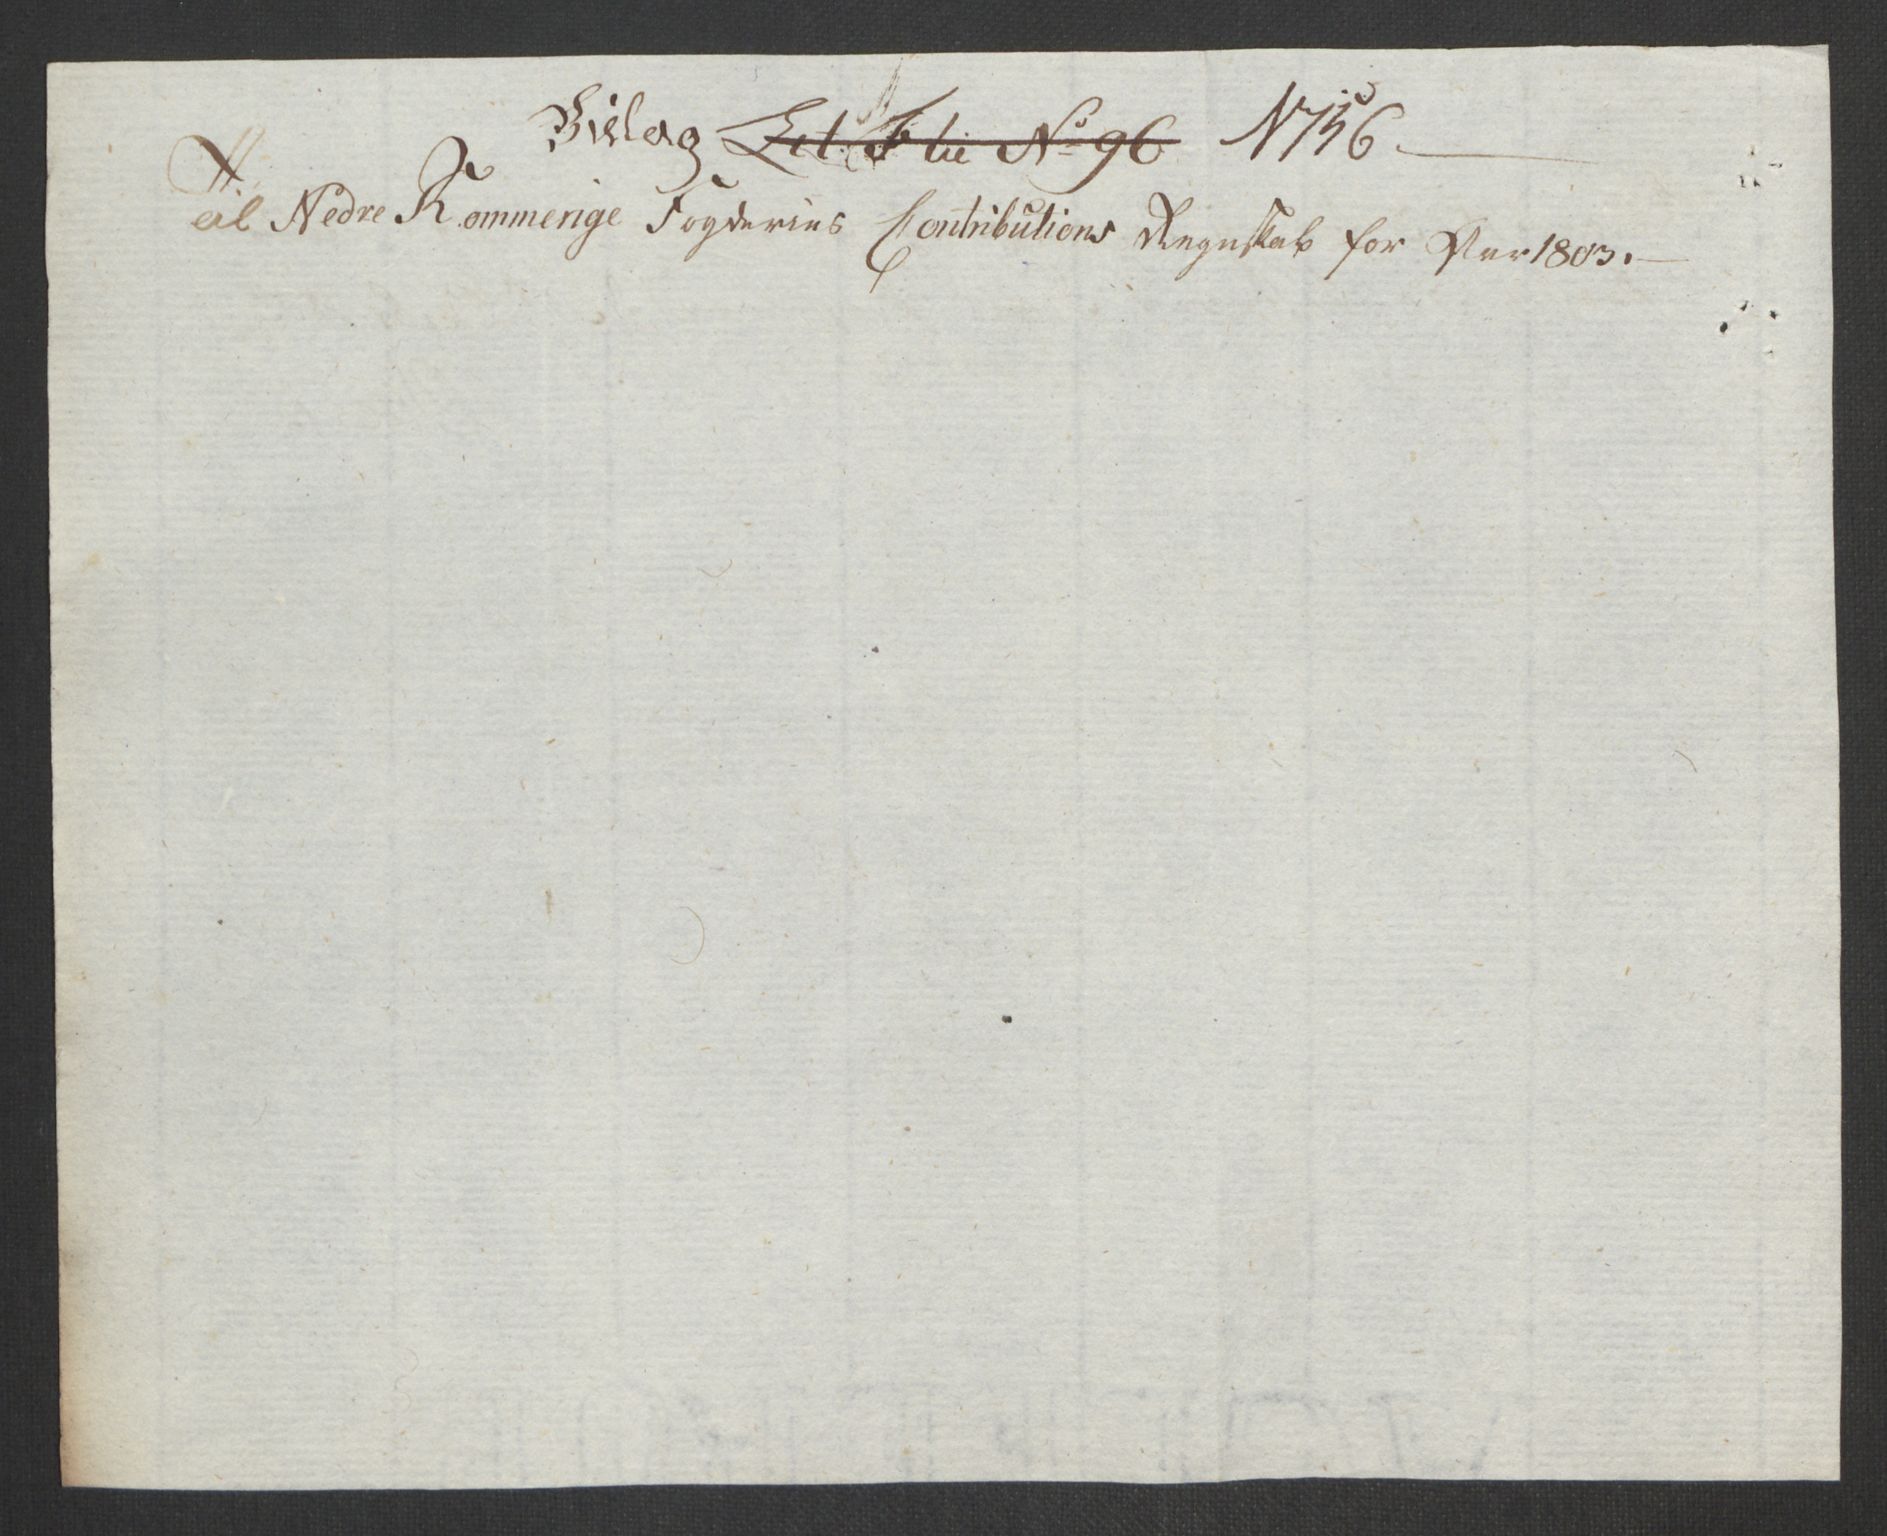 Bielag ~~Lit. F lit No 96~~ No 156.
Til Nedre Rommerige Fogderies Contributions Regnskab for Aar 1803.